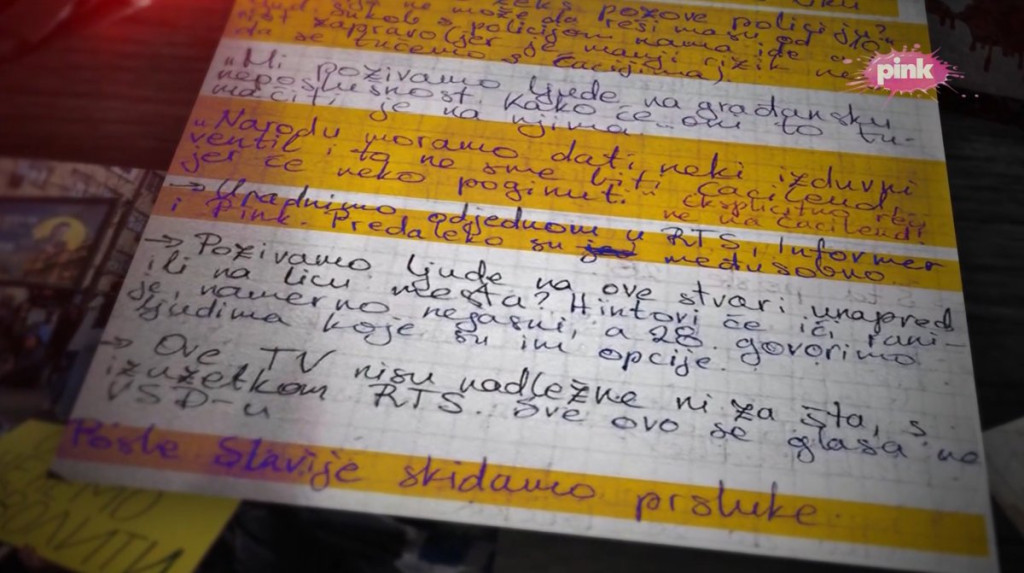 pozove policiju?
ne može da reši masu od 10"
sukob s policijom nama ide u
zapravo (jer je manji rizik ne
da se tučemo s ćacijima)
„Mi pozivamo ljude na građansku
neposlušnost. Kako će oni to tu-
mačiti je na njima
„Narodu moramo dati neki izduvni
ventil i to ne sme biti Ćacilend
jer će neko poginuti."
ne na Ćacilend!
→ Uradnimo odjednom u RTS, Informer
i Pink. Predaleko su međusobno.
→ Pozivamo ljude na ove stvari unapred
ili na licu mesta? Hintovi će ići rani-
je, namerno nejasni, a 28. govorimo
ljudima koje su im opcije.
→ Ove TV nisu nadležne ni za šta, s
izuzetkom RTS. Sve ovo se glasa na
VSD-u
Posle Slavije skidamo prsluke.
pink